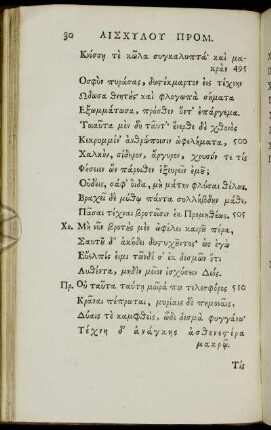 30 ΑΙΣΧΥΛΟΥ ΠΡΟΜ.
Κνίσσῃ τὲ κῶλα συγκαλυπτὰ καὶ μα-
κρὰν 495
Ὀσφῦν πυράσας, δυςτέκμαρτον εἰς τέχνην
Ὥδωσα θνητὲς καὶ φλογωπὰ σήματα
Ἐξωμμάτωσα, πρόσθεν ὄντ' ἐπάργεμα.
Τοιαῦτα μὲν δὴ ταῦτ'· ἔνερθε δὲ χθονὸς
Κεκρυμμέν' ἀνθρώποισιν ὠφελήματα, 500
Χαλκὸν, σίδηρον, ἄργυρον, χρυσόν τε τίς
Φήσειεν ἂν πάροιθεν ἐξευρεῖν ἐμȣ͂;
Οὐδεὶς, σάφ' οἶδα, μὴ μάτην φλύσαι θέλων.
Βραχεῖ δὲ μύθῳ πάντα συλλήβδην μάθε,
Πᾶσαι τέχναι βροτοῖσιν ἐκ Προμηθέως. 505
Χο. Μή νῦν βροτȣ̀ς μὲν ὠφέλει καιρȣ͂ πέρα,
Σαυτȣ͂ δ' ἀκήδει δυςτυχȣ͂ντος· ὡς ἐγὼ
Εὔελπίς εἰμι τῶνδέ σ' ἐκ δεσμῶν ἔτι
Λυθέντα, μηδὲν μεῖον ἰσχύσειν Διός.
Πρ. Οὐ ταῦτα ταύτῃ μοῖρά πω τελεσφόρος 510
Κρᾶναι πέπρωται, μυρίαις δὲ πημοναῖς,
Δύαις τὲ καμφθεὶς, ὧδε δεσμὰ φυγγάνω·
Τέχνη δ' ἀνάγκης ἀσθενεςέρα
μακρῷ.
Τίς